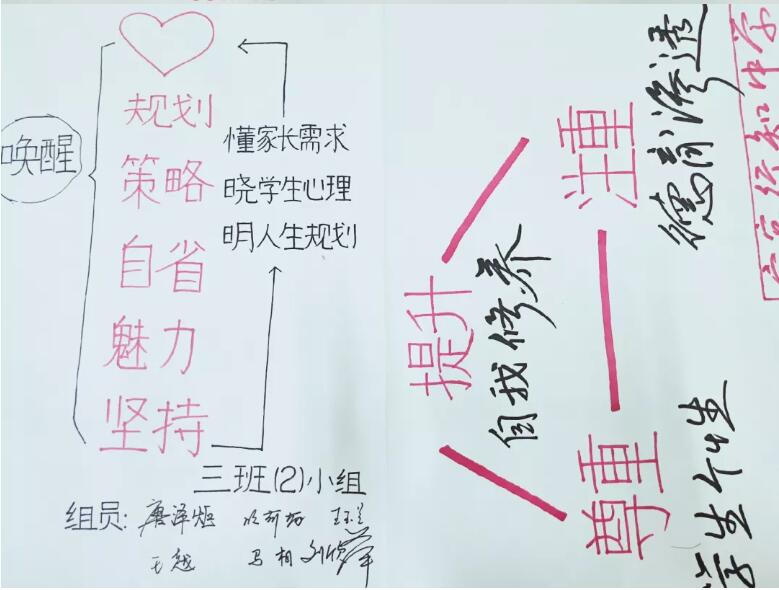 唤醒
规划
策略
自省
魅力
坚持
懂家长需求
晓学生心理
明人生规划
三班(2)小组
组员:唐泽炬
王越 马相
提升
自我修养
注重
德育渗透
尊重
学生个性